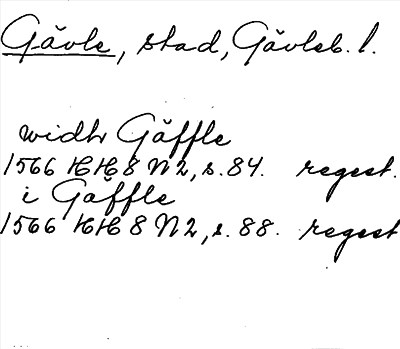 Gävle, stad, Gävleb. l.
widh Gäffle
1566 HH 8 N 2, s. 84. regest.
i Gäffle
1566 HH 8 N 2, s. 88. regest